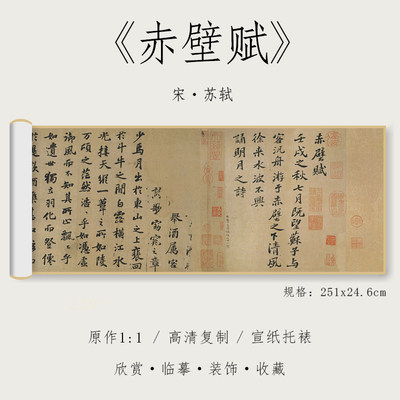 《赤壁赋》
宋·苏轼
赤壁賦
壬戌之秋七月既望蘇子與
客泛舟游于赤壁之下清風
徐来水波不興
誦明月之詩
舉酒屬客
歌窈窕之章
少焉月出於東山之上裴回
於斗牛之間白露橫江水
光接天縱一葦之所如陵
万頃之茫然浩〻乎如馮虛
御風而不知其所止飄〻乎
如遺世獨立羽化而登僊
规格：251x24.6cm
原作1:1 / 高清复制 / 宣纸托裱
欣赏·临摹·装饰·收藏